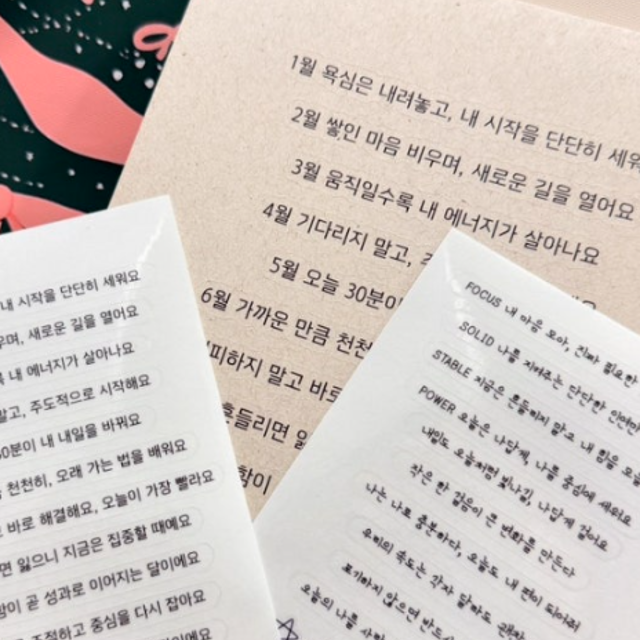 1월 욕심은 내려놓고, 내 시작을 단단히 세워
2월 쌓인 마음 비우며, 새로운 길을 열어요
3월 움직일수록 내 에너지가 살아나요
4월 기다리지 말고,
5월 오늘 30분이
6월 가까운 만큼 천천
미하지 말고 바로
흔들리면
내 시작을 단단히 세워요
우며, 새로운 길을 열어요
내 에너지가 살아나요
말고, 주도적으로 시작해요
30분이 내 내일을 바꿔요
천천히, 오래 가는 법을 배워요
바로 해결해요, 오늘이 가장 빨라요
면 잃으니 지금은 집중할 때예요
이 곧 성과로 이어지는 달이에요
조절하고 중심을 다시 잡아요
FOCUS 내 마음 모아, 진짜 필요한
SOLID 나를 지켜주는 단단한
STABLE 지금은 흔들리지 말고, 내 힘을
POWER 오늘은 나답게, 나를 중심에 세워요
내일도 오늘처럼 빛나길, 나답게
작은 한 걸음이 큰 변화를 만든다
나는 나로 충분하다, 오늘도 내 편이
우리의 속도는 각자 달라도
포기하지 않으면 반드시
오늘의 나를